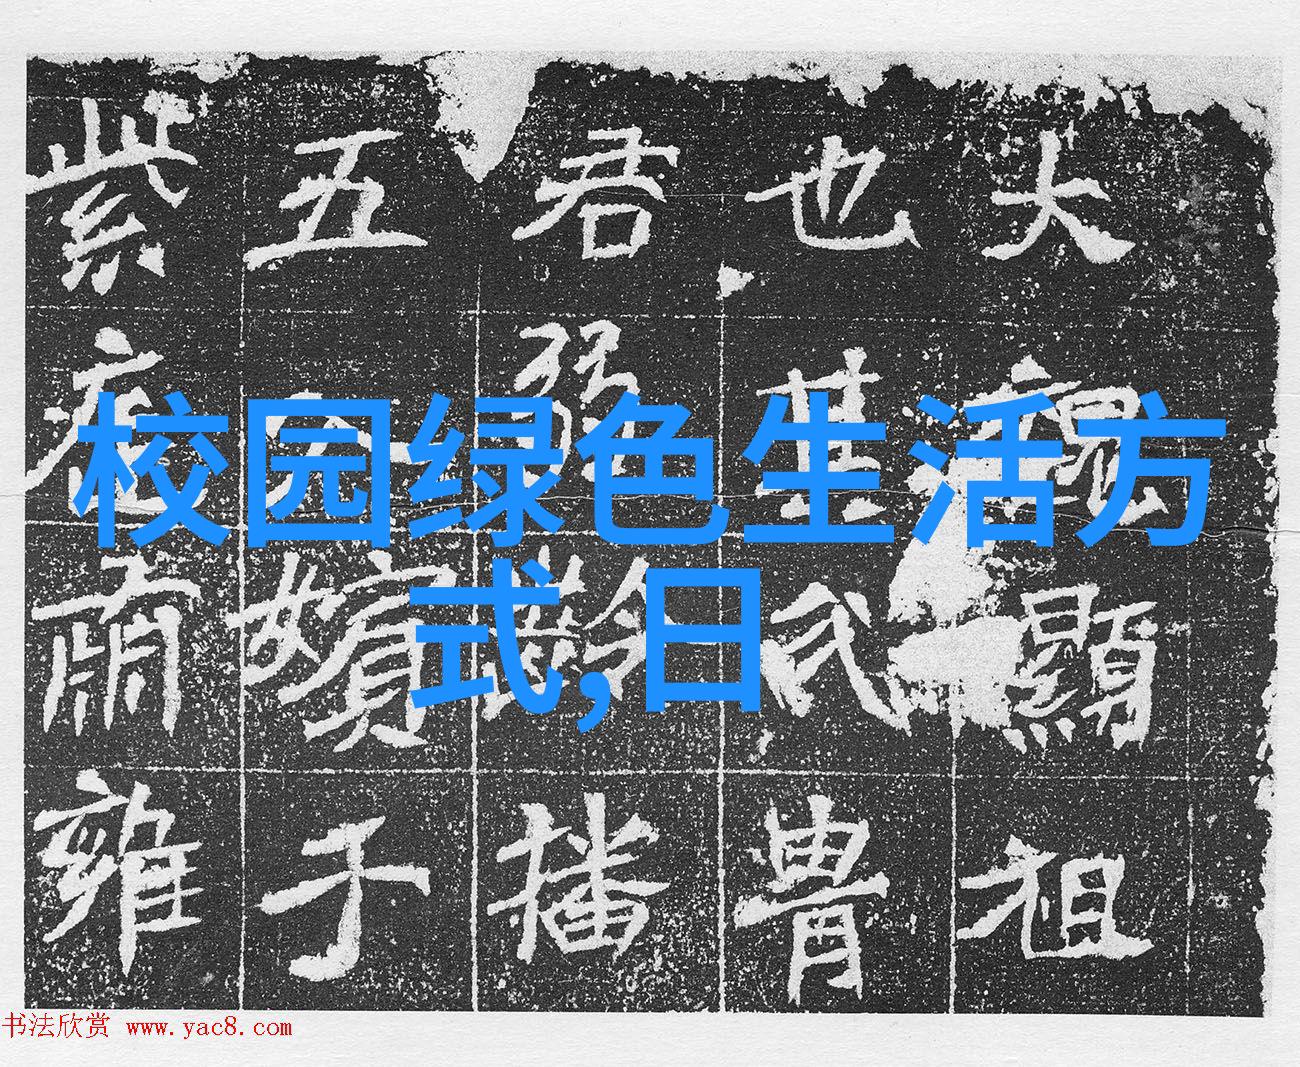 校园绿色生活方
式,日
大魏顯祖
也氏胄
君弱齡播
五入嬪于
紫庭肅雍
书法欣赏 www.yac8.com